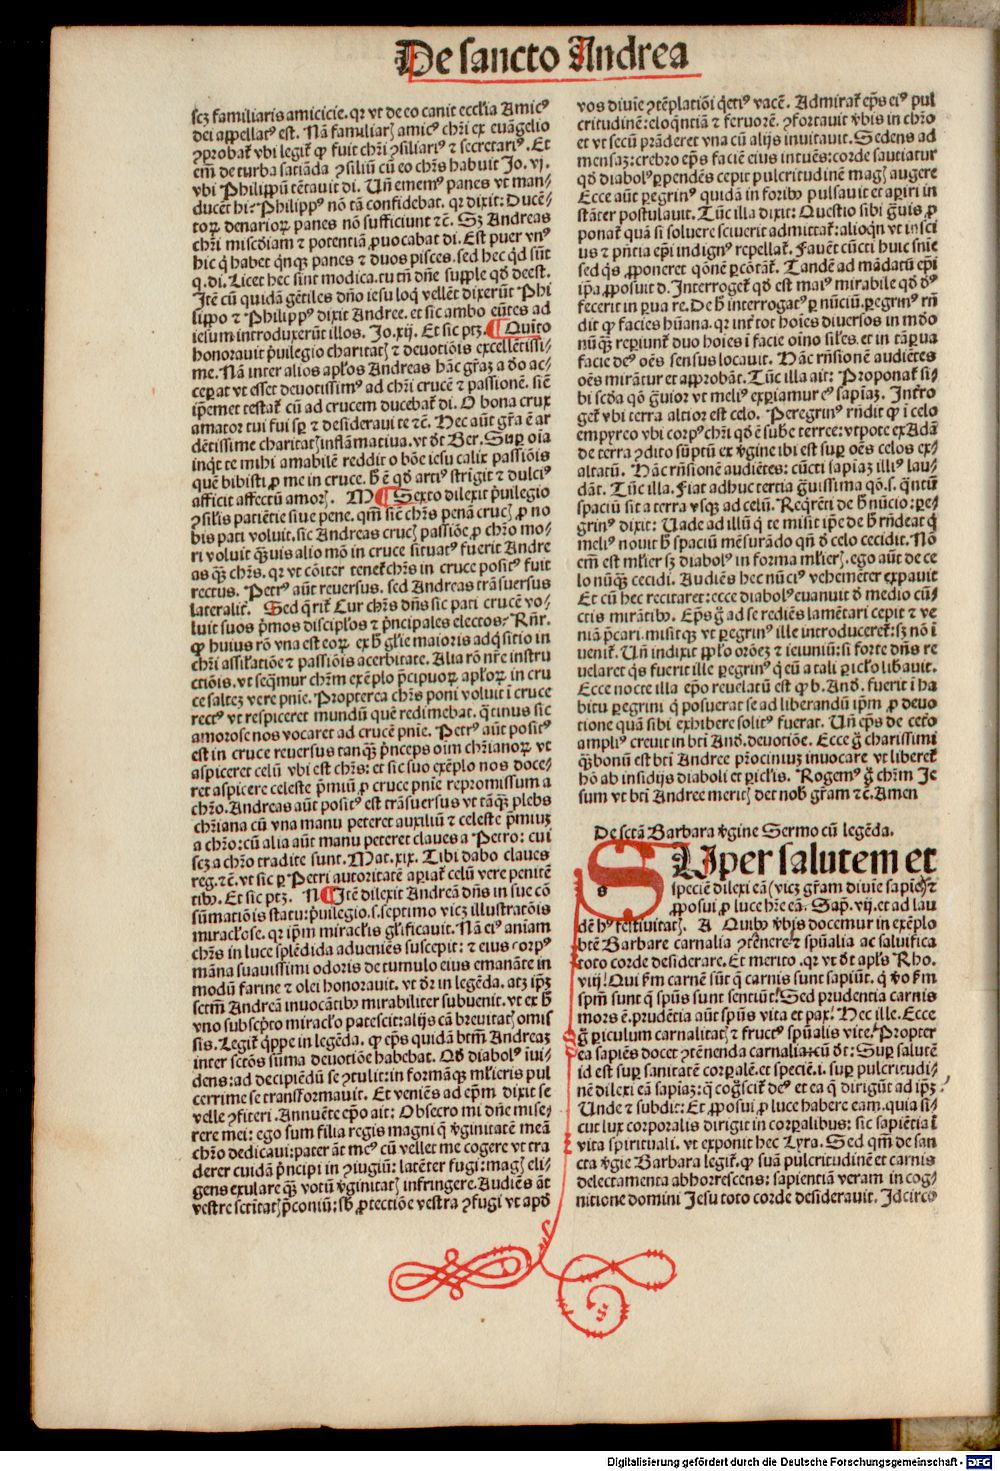 De sancto Andrea
scz familiaris amicicie. qr vt de eo canit eccl'ia Amicꝰ
dei appellatꝰ est. Nā familiarꝭ amicꝰ chr̄i ex euāgelio
ꝯprobat᷑ vbi legit᷑ ꝙ fuit chr̄i ꝯsiliariꝰ ⁊ secretariꝰ. Et
em̄ de turba satiāda ꝯsiliū cū eo chr̄s habuit Jo. vj.
vbi Philippū tētauit di. Vn̄ ememꝰ panes vt man/
ducēt hi? Philippꝰ nō tā confidebat. qr dixit: Ducē/
toꝝ denarioꝝ panes nō sufficiunt ⁊c̄. Sz Andreas
chr̄i mis̄cdiam ⁊ potentiā ꝓuocabat di. Est puer vnꝰ
hic q̇ habet qn̄qꝫ panes ⁊ duos pisces. sed hec qd sūt
q. di. Licet hec sint modica. tu tn̄ dn̄e supple qd̄ deest.
Itē cū quidā gētiles dn̄o iesu loq̇ vellēt dixerūt Phi
lippo ⁊ Philippꝰ dixit Andree. et sic ambo eūtes ad
iesum introduxerūt illos. Jo. xij. Et sic ptꝫ. ¶ Quīto
honorauit p̄uilegio charitatꝭ ⁊ deuotiōis excellētissi/
me. Nā inter alios apl'os Andreas hāc gr̄az a dō ac/
cepat vt esset deuotissimꝰ ad chr̄i crucē ⁊ passionē. sic̄
ip̄emet testat᷑ cū ad crucem ducebat᷑ di. O bona crux
amator tui fui sꝑ ⁊ desideraui te ⁊c̄. Hec aūt gr̄a ē ar
dētissime charitatꝭ inflāmatiua. vt dt̄ Ber. Suꝑ oīa
inq̇t te mihi amabilē reddit o bōe iesu calix passiōis
quē bibisti ꝓ me in cruce. h̄ ē qd̄ artiꝰ strīgit ⁊ dulciꝰ
afficit affectū amorꝭ. M ¶ Sexto dilexit p̄uilegio
ꝯsil'is patiētie siue pene. qm̄ sic̄ chr̄s penā crucꝭ ꝓ no
bis pati voluit. sic Andreas crucꝭ passiōe ꝓ chr̄o mo/
ri voluit qꝫuis alio mō in cruce situatꝰ fuerit Andre
as qꝫ chr̄s. qr vt cōiter tenet᷑ chr̄s in cruce positꝰ fuit
rectus. Petrꝰ aūt reuersus. sed Andreas trāsuersus
lateralit᷑. Sed q̄rit᷑ Cur chr̄s dn̄s sic pati crucē vo/
luit suos p̄mos discipl'os ⁊ p̄ncipales electos? Rn̄r.
ꝙ huius rō vna est eoꝝ ex h̄ gl'ie maioris adq̇sitio in
chr̄i assil'atiōe ⁊ passiōis acerbitate. Alia rō nr̄e instru
ctiōis. vt seq̄mur chr̄m exēplo p̄cipuoꝝ apl'oꝝ in cru
ce saltez vere pnīe. Propterea chr̄s poni voluit ī cruce
rectꝰ vt respiceret mundū quē redimebat. q̄tinus sic
amorose nos vocaret ad crucē pnīe. Petrꝰ aūt positꝰ
est in cruce reuersus tanqꝫ p̄nceps oīm chr̄ianoꝝ vt
aspiceret celū vbi est chr̄s: et sic suo exēplo nos doce/
ret aspicere celeste p̄miū ꝓ cruce pnīe repromissum a
chr̄o. Andreas aūt positꝰ est trāsuersus vt tāqꝫ plebs
chr̄iana cū vna manu peteret auxiliū ⁊ celeste p̄miuz
a chr̄o: cū alia aūt manu peteret claues a Petro: cui
scz a chr̄o tradite sunt. Mat. xix. Tibi dabo claues
reg. ⁊c̄. vt sic ꝑ Petri autoritatē aꝑiat᷑ celū vere penitē
tibꝰ. Et sic ptꝫ. N ¶ Itē dilexit Andreā dn̄s in sue cō
sūmatiōis statu: p̄uilegio. s. septimo vicz illustratōis
miracl'ose. qr ip̄m miracl'is gl'ificauit. Nā eiꝰ aniam
chr̄s in luce splēdida adueniēs suscepit: ⁊ eius corpꝰ
māna suauissimi odoris de tumulo eius emanāte in
modū farine ⁊ olei honorauit. vt dr̄ in legēda. atqꝫ ip̄z
sctm̄ Andreā inuocātibꝰ mirabiliter subuenit. vt ex h̄
vno subscp̄to miracl'o patescit: alijs cā breuitatꝭ omis
sis. Legit᷑ q̄ppe in legēda. ꝙ ep̄s quidā btm̄ Andreaz
inter sctōs sūma deuotiōe habebat. Qd̄ diabolꝰ īui/
dens: ad decipiēdū se ꝯtulit: in formāqꝫ ml'ieris pul
cerrime se transformauit. Et veniēs ad ep̄m dixit se
velle ꝯfiteri. Annuēte ep̄o ait: Obsecro mi dn̄e mise/
rere mei: ego sum filia regis magni q̄ v̄ginitatē meā
chr̄o dedicaui: pater āt meꝰ cū vellet me cogere vt tra
derer cuidā p̄ncipi in ꝯiugiū: latēter fugi: magꝭ eli/
gens exulare qꝫ votū v̄ginitatꝭ infringere. Audiēs āt
vestre sctītatꝭ p̄coniū: sb̄ ꝓtectiōe vestra ꝯfugi vt apd̄
vos diuīe ꝯtēplatiōi q̇etiꝰ vacē. Admirat᷑ ep̄s eiꝰ pul
critudinē: eloq̄ntiā ⁊ feruorē. ꝯfortauit v̄bis in chr̄o
et vt secū prāderet vna cū alijs inuitauit. Sedens ad
mensaz: crebro ep̄s faciē eius intuēs: corde sautiatur
qd̄ diabolꝰ ꝑpendēs cepit pulcritudinē magꝭ augere
Ecce aūt ꝑegrinꝰ quidā in foribꝰ pulsauit et aꝑiri in
stāter postulauit. Tūc illa dixit: Questio sibi gͣuis ꝓ
ponat᷑ quā si soluere sciuerit admittat᷑: alioqn̄ vt insci
us ⁊ pn̄tia ep̄i indignꝰ repellat᷑. Fauēt cūcti huic snīe
sed q̇s ꝓponeret qōnē ꝑcōtāt᷑. Tandē ad mādatū ep̄i
ip̄a ꝓposuit d. Interroget᷑ qd̄ est maiꝰ mirabile qd̄ dꝰ
fecerit in ꝑua re. De h̄ interrogatꝰ ꝑ nūciū ꝑegrinꝰ rn̄
dit ꝙ facies hūana. qr int᷑ tot hoīes diuersos in mōdo
nūqꝫ reꝑiunt᷑ duo hoīes ī facie oīno sil'es. et in tā ꝑua
facie deꝰ oēs sensus locauit. Hāc rn̄sionē audiētes
oēs mirātur et approbāt. Tūc illa ait: Proponat᷑ si/
bi scd̄a qō gͣuior vt meliꝰ exꝑiamur eꝰ sapiaz. Int᷑ro
get᷑ vbi terra altior est celo. Peregrinꝰ rn̄dit ꝙ ī celo
empyreo vbi corpꝰ chr̄i qd̄ ē subē terree: vtpote ex Adā
de terra ꝯdito sūptū ex v̄gine ibi est suꝑ oēs celos ex/
altatū. Hāc rn̄sionē audiētes: cūcti sapiaz illiꝰ lau/
dāt. Tūc illa. Fiat adhuc tertia gͣuissima qō. s. q̄ntū
spaciū sit a terra vsqꝫ ad celū. Req̇rēti de h̄ nūcio: ꝑe/
grinꝰ dixit: Uade ad illū q̇ te misit ip̄e de h̄ rn̄deat q̇
meliꝰ nouit h̄ spaciū mēsurādo qn̄ d̄ celo cecidit. Nō
em̄ est ml'ier sꝫ diabolꝰ in forma ml'ierꝭ. ego aūt de ce
lo nūqꝫ cecidi. Audiēs hec nūciꝰ vehemēter expauit
Et cū hec recitaret: ecce diabolꝰ euanuit d̄ medio cū/
ctis mirātibꝰ. Ep̄s gͦ ad se rediēs lamētari cepit ⁊ ve
niā p̄cari. misitqꝫ vt ꝑegrinꝰ ille introduceret᷑: sꝫ nō ī
uenit᷑. Un̄ indixit ppl'o orōez ⁊ ieiuniū: si forte dn̄s re
uelaret q̇s fuerit ille ꝑegrinꝰ q̇ eū a tali ꝑicl'o libauit.
Ecce nocte illa ep̄o reuelatū est ꝙ b. And. fuerit ī ha
bitu ꝑegrini q̇ posuerat se ad liberandū ip̄m ꝓ deuo
tione quā sibi exhibere solitꝰ fuerat. Un̄ ep̄s de ceto
ampliꝰ creuit in bti And. deuotiōe. Ecce gͦ charissimi
qꝫ bonū est bti Andree pr̄ociniuz inuocare vt liberet᷑
hō ab insidijs diaboli et ꝑicl'is. Rogemꝰ gͦ chr̄m Je
sum vt bti Andree meritꝭ det nobꝭ gr̄am ⁊c̄. Amen
De sctā Barbara v̄gine Sermo cū legēda.
SUper salutem et
s
speciē dilexi eā (vicz gr̄am diuīe sapiē) ⁊
ꝓposui ꝓ luce hr̄e eā. Sap. vij. et ad lau
dē hꝰ festiuitatꝭ. A Quibꝰ v̄bis docemur in exēplo
btē Barbare carnalia ꝯtēnere ⁊ spūalia ac saluifica
toto corde desiderare. Et merito. qr vt dt̄ apl's Rho.
viij. Qui s̄m carnē sūt q̄ carnis sunt sapiūt. q̇ vo s̄m
spm̄ sunt q̄ spūs sunt sentiūt. Sed prudentia carnis
mors ē. prudētia aūt spūs vita et pax. Hec ille. Ecce
gͦ ꝑiculum carnalitatꝭ ⁊ fructꝰ spūalis vite. Propter
ea sapiēs docet ꝯtēnenda carnalia cū dt̄: Suꝑ salutē
id est suꝑ sanitatē corꝑalē. et speciē. i. suꝑ pulcritudi/
nē dilexi eā sapiaz: q̄ cogͦscit᷑ deꝰ et ea q̄ dirigūt ad ip̄z.
Unde ⁊ subdit: Et ꝓposui ꝓ luce habere eam. quia si/
cut lux corporalis dirigit in corꝑalibus: sic sapiētia ī
vita spirituali. vt exponit hec Lyra. Sed qm̄ de san
cta v̄gīe Barbara legit᷑. ꝙ suā pulcritudinē et carnis
delectamenta abhorrescens: sapientiā veram in cog/
nitione domini Jesu toto corde desiderauit. Idcirco
Digitalisierung gefördert durch die Deutsche Forschungsgemeinschaft - DFG